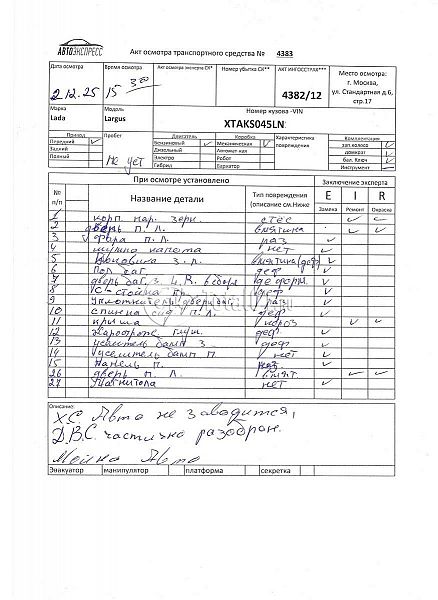 АВТОЭКСПРЕСС
Акт осмотра транспортного средства № 4383
Дата осмотра Время осмотра Акт осмотра эксперта СК* Номер убытка СК** АКТ ИНГОССТРАХ*** Место осмотра:
2.12.25 15 30 4382/12 г. Москва,
ул. Стандартная д.6,
стр.17
Марка Модель Номер кузова -VIN
Lada Largus XTAKS045LN
Привод Пробег Двигатель Коробка Характеристика повреждения Комплектация
Передний ✓ Бензиновый ✓ Механическая ✓ зап.колесо ✓
Задний Дизельный Автомат кая домкрат
Полный Не уст Электро Робот бал. Ключ ✓
Гибрид Вариатор Инструмент
При осмотре установлено Заключение эксперта
№ п/п Название детали Тип повреждения (описание см.Ниже) E I R
Замена Ремонт Окраска
1 корп. нар. зерк. стёс ✓ ✓
2 дверь п. Л. вмятина ✓ ✓
3 Фара п. Л. раз ✓
4 капота нет ✓
5 Боковина з. л. вмятина (деф) ✓
6 Пол баг. деф ✓
7 дверь баг. з. в сборе деформ. ✓
8 стойка пр. деф ✓
9 Уплотнитель двер баг. раз ✓
10 спинка сид. п. Л. деф ✓
11 крыша перез ✓ ✓
12 деф. ✓
13 усилитель бамп з. деф ✓
14 усилитель бамп п. нет ✓
15 Панель п. раз. ✓
26 дверь п. Л. вмят. ✓ ✓
27 Магнитола нет ✓
Описание:
Х.С. Авто не заводится,
Д.В.С. частично разобран.
Авто
Эвакуатор манипулятор платформа секретка